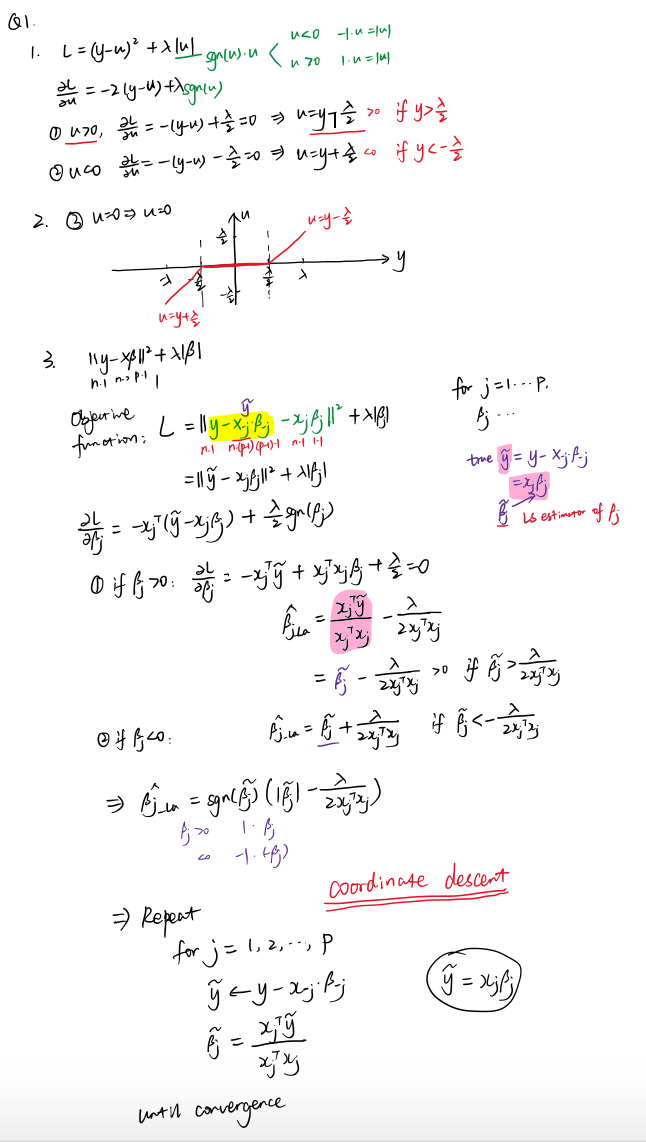 Q1.
1. L = (y-u)² + λ|u| sgn(u)·u { u<0 -1·u = |u|
u>0 1·u = |u|
∂L/∂u = -2(y-u) + λ sgn(u)
① u>0, ∂L/∂u = -(y-u) + λ/2 = 0 ⇒ u = y - λ/2 >0 if y > λ/2
② u<0 ∂L/∂u = -(y-u) - λ/2 = 0 ⇒ u = y + λ/2 <0 if y < -λ/2
2. ③ u=0 ⇒ u=0
u
λ/2
u = y - λ/2
y
-λ -λ/2 λ/2 λ
-λ/2
u = y + λ/2
3. ||y - xβ||² + λ|β|
n·1 n·p p·1 1
Objective function: L = ||y - x-j·β-j - xjβj||² + λ|βj|
ỹ
n·1 n·(p-1) (p-1)·1 n·1 1·1
= ||ỹ - xjβj||² + λ|βj|
for j = 1 ··· p,
βj ···
true ỹ = y - x-j·β-j
= xjβj
β̃j is estimator of βj
∂L/∂βj = -xjᵀ(ỹ - xjβj) + λ/2 sgn(βj)
① if βj>0: ∂L/∂βj = -xjᵀỹ + xjᵀxjβj + λ/2 = 0
β̂j,la = xjᵀỹ / xjᵀxj - λ / 2xjᵀxj
= β̃j - λ / 2xjᵀxj >0 if β̃j > λ / 2xjᵀxj
② if βj<0: β̂j_la = β̃j + λ / 2xjᵀxj if β̃j < - λ / 2xjᵀxj
⇒ β̂j_la = sgn(β̃j) (|β̃j| - λ / 2xjᵀxj)
βj >0 1·βj
<0 -1·(-βj)
coordinate descent
⇒ Repeat
for j = 1, 2, ···, p
ỹ ← y - x-j·β-j
β̃j = xjᵀỹ / xjᵀxj
ỹ = xjβj
until convergence